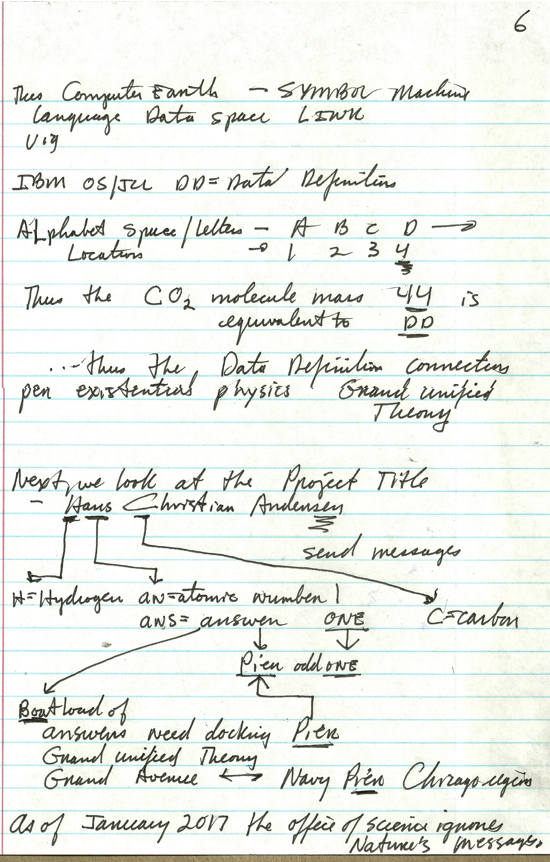 6
Thus Computer Earth – SYMBOL Machine
Language Data Space LINK
Vig
IBM OS/JCL DD = Data Definition
Alphabet Space/Letters – A B C D →
Location → 1 2 3 4
Thus the CO2 molecule mass 44 is
equivalent to DD
...thus the Data Definition connection
per existential physics Grand unified
Theory
Next, we look at the Project Title
– Hans Christian Andersen
send messages
H = Hydrogen an = atomic number 1 C = carbon
ans = answer ONE
Pier odd ONE
Boatload of
answers need docking Pier
Grand unified Theory
Grand Avenue ↔ Navy Pier Chicago region
As of January 2017 the office of science ignores
Nature's messages.